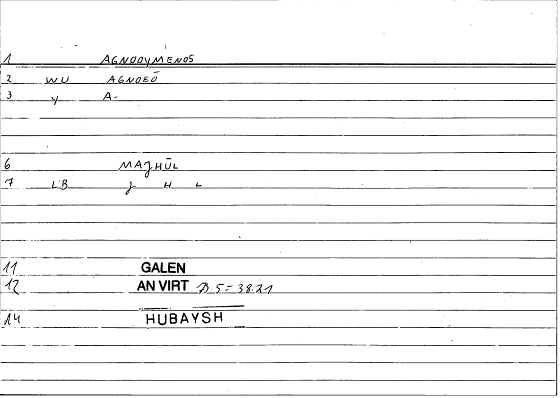 1 AGNOOYMENOS
2 WU AGNOEŌ
3 Y A-
6 MAJHŪL
7 LB J H L
11 GALEN
12 AN VIRT D.5 = 38.21
14 HUBAYSH